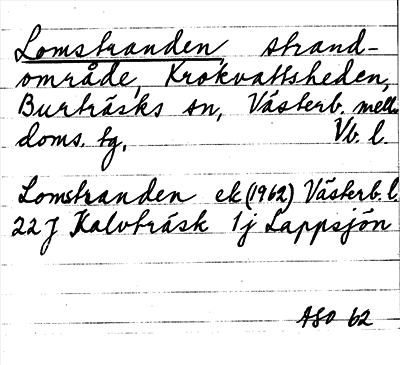 Lomstranden, strand-
område, Krokvattsheden,
Burträsks sn, Västerb. mell.
doms. tg, Vb. l.
Lomstranden ek (1962) Västerb. l.
22 J Kalvträsk 1j Lappsjön
ASO 62